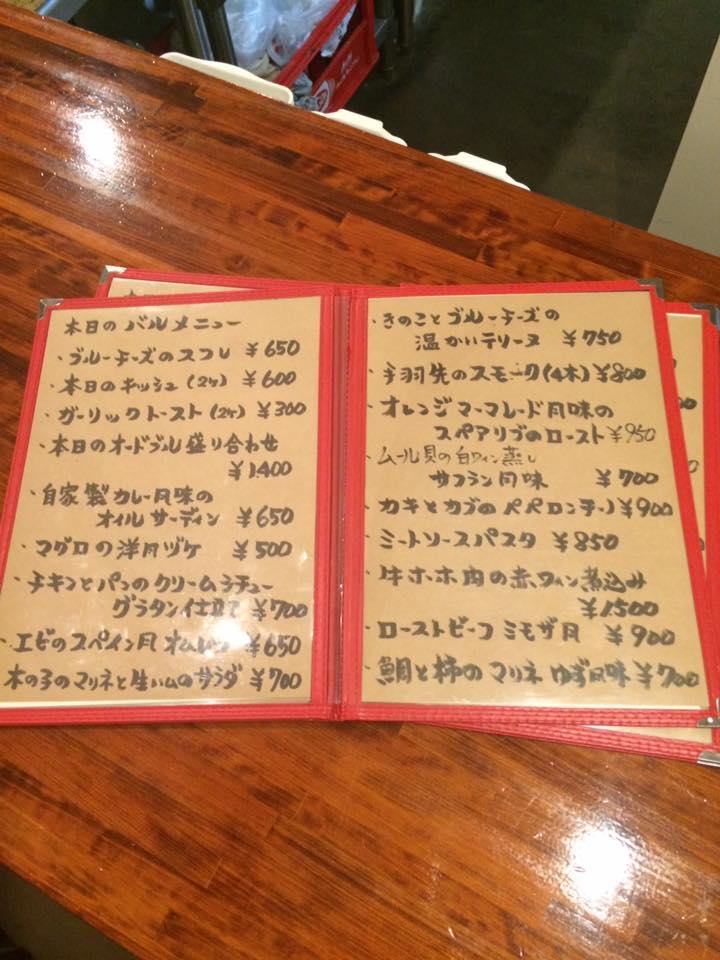 本日のバルメニュー
・ブルーチーズのスフレ ¥650
・本日のキッシュ(2ケ) ¥600
・ガーリックトースト(2ケ) ¥300
・本日のオードブル盛り合わせ
¥1,400
・自家製カレー風味の
オイルサーディン ¥650
・マグロの洋風ヅケ ¥500
・チキンとパンのクリームシチュー
グラタン仕立て ¥700
・エビのスペイン風オムレツ ¥650
木の子のマリネと生ハムのサラダ ¥700
・きのことブルーチーズの
温かいテリーヌ ¥750
・手羽先のスモーク(4本) ¥800
・オレンジマーマレード風味の
スペアリブのロースト ¥950
・ムール貝の白ワイン蒸し
サフラン風味 ¥700
・カキとカブのペペロンチーノ ¥900
・ミートソースパスタ ¥850
・牛ホホ肉の赤ワイン煮込み
¥1500
・ローストビーフ ミモザ風 ¥900
・鯛と柿のマリネ ゆず風味 ¥700